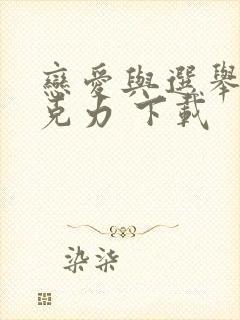 戀愛與選舉
克力 下載
染柒